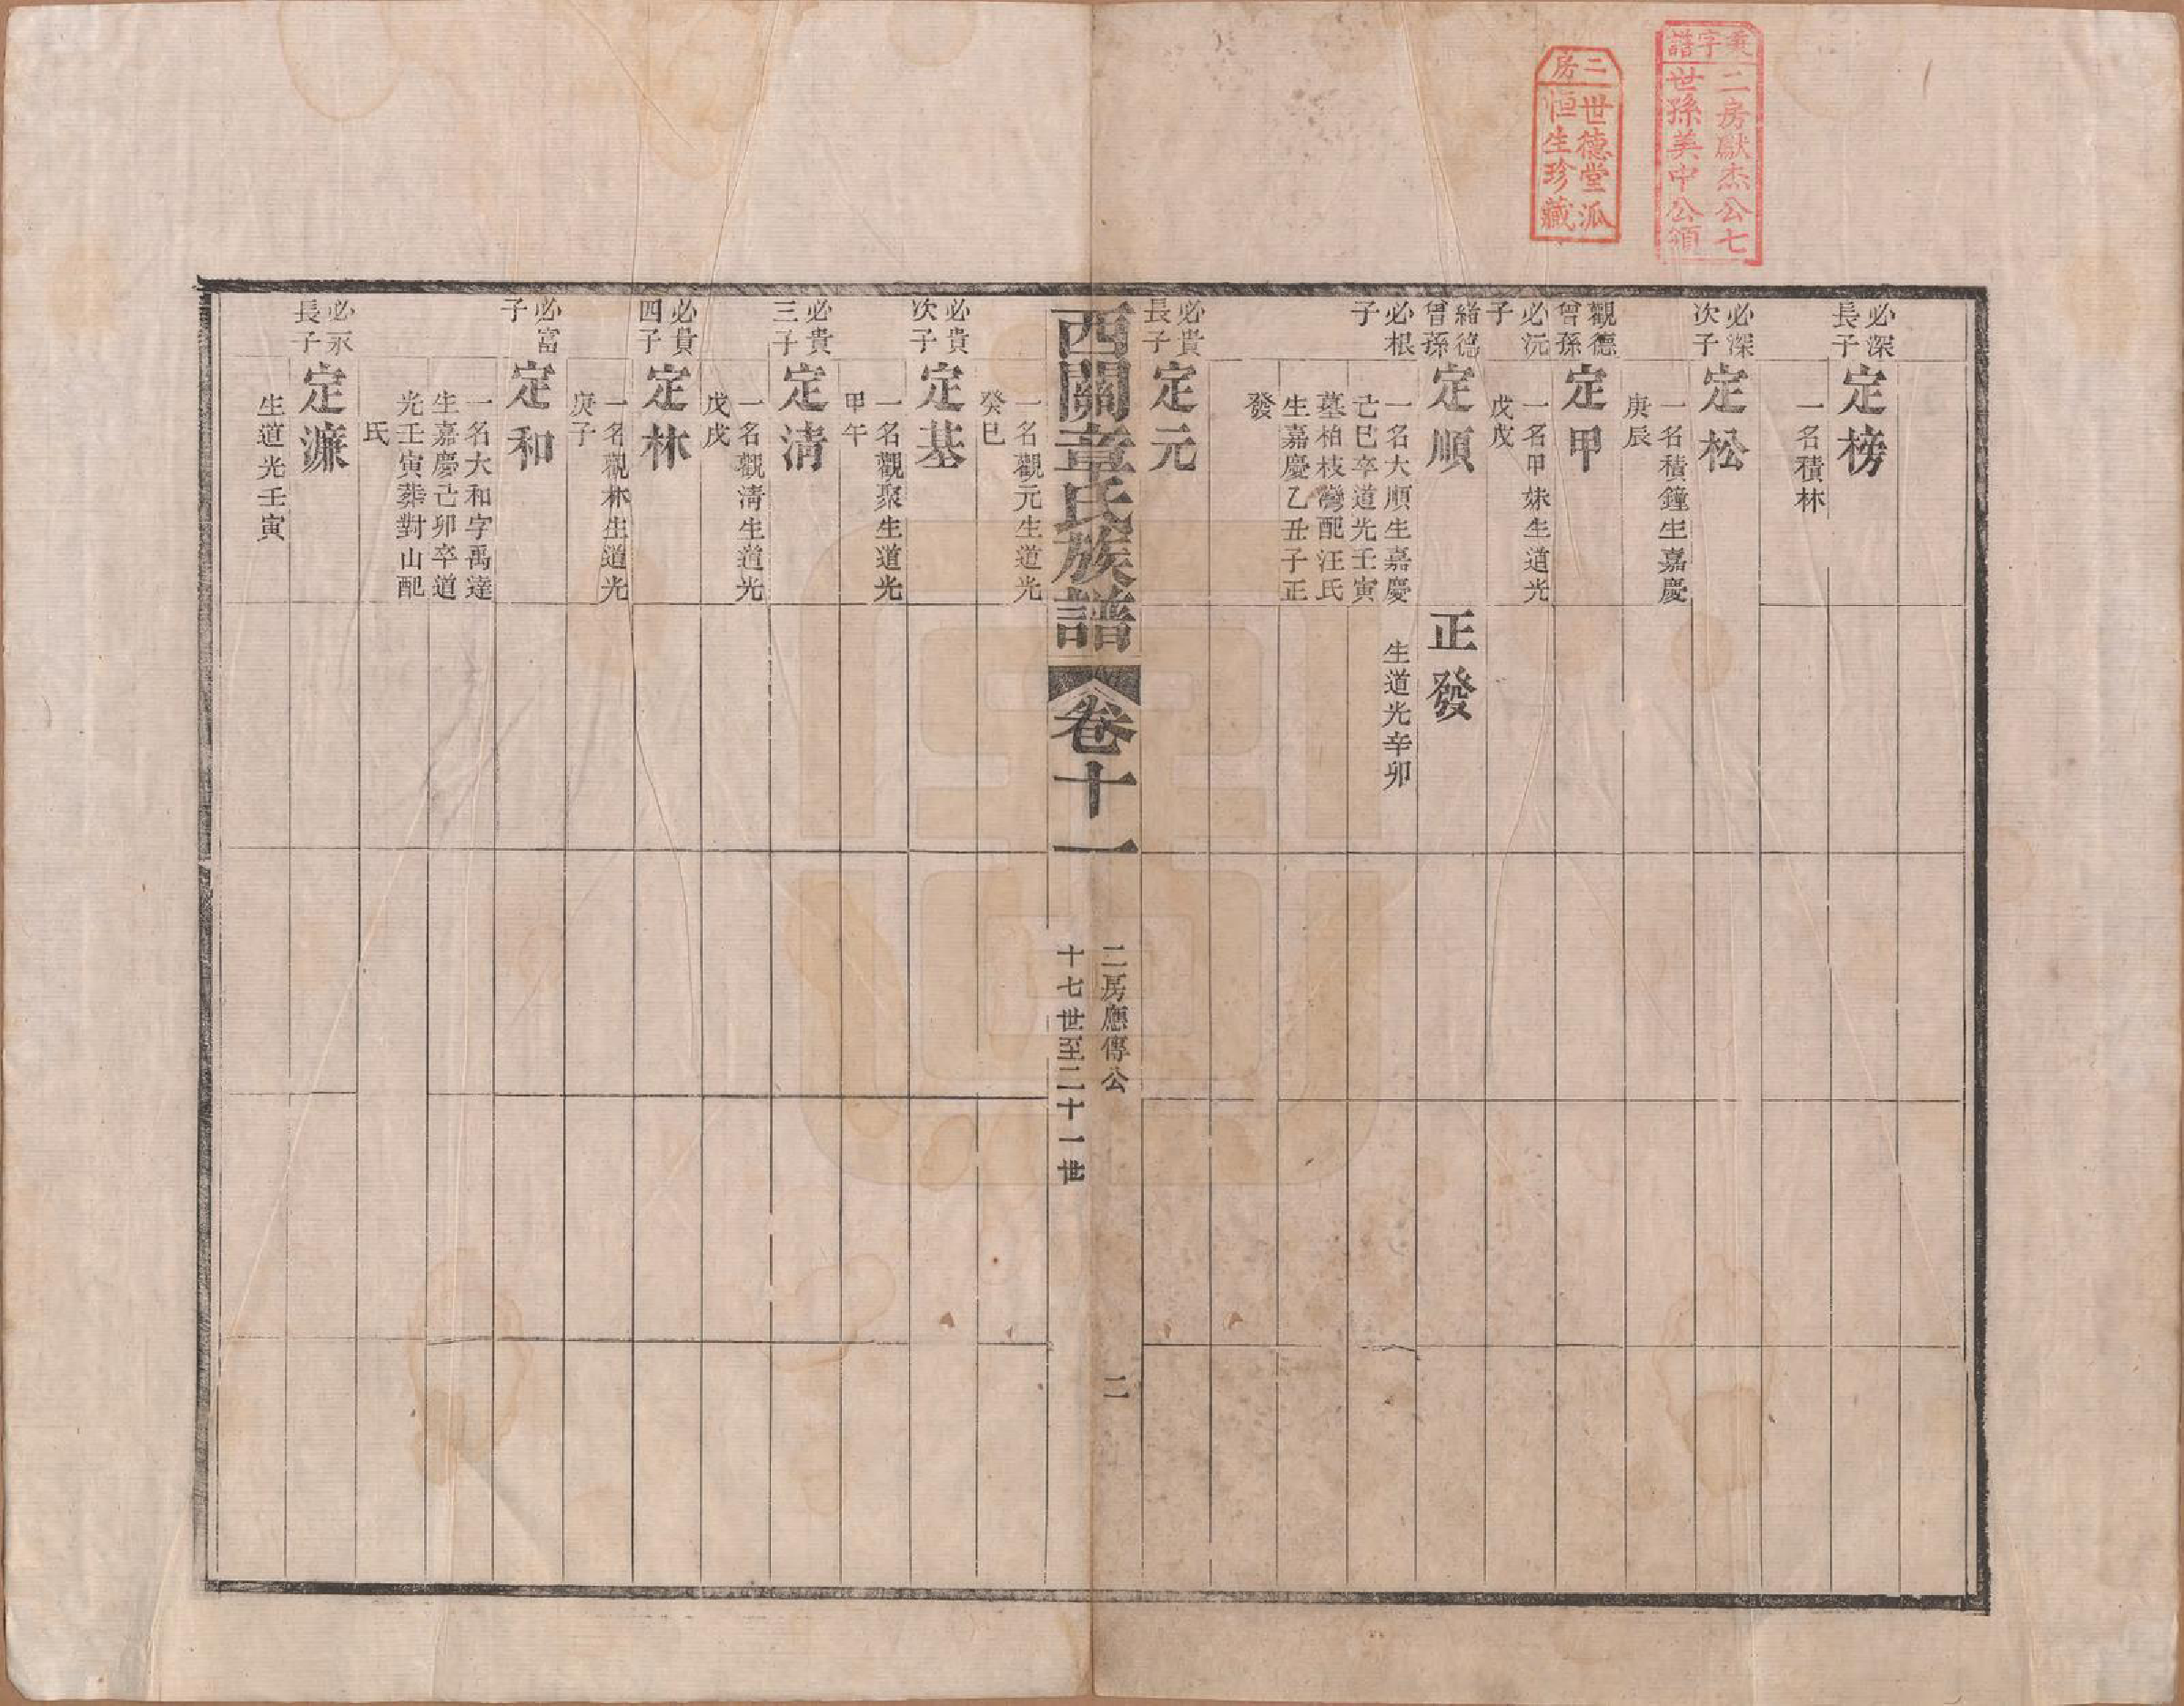 二房獻杰公七
世孫美中公領
二房
世德堂派
恒生珍藏
必深
長子
定榜
一名積林
必深
次子
定松
一名積鐘生嘉慶
庚辰
觀德
曾孫
定甲
必沅
子
一名甲妹生道光
戊戌
緒德
曾孫
定順
正發
必根
子
一名大順生嘉慶
己巳卒道光壬寅
墓柏枝灣配汪氏
生嘉慶乙丑子正
發
生道光辛卯
必貴
長子
定元
西關章氏族譜
卷十一
二房應傳公
十七世至二十一世
二
一名觀元生道光
癸巳
必貴
次子
定基
一名觀聚生道光
甲午
必貴
三子
定清
一名觀清生道光
戊戌
必貴
四子
定林
一名觀林生道光
庚子
必富
子
定和
一名大和字禹達
生嘉慶己卯卒道
光壬寅葬對山配
氏
必永
長子
定濂
生道光壬寅